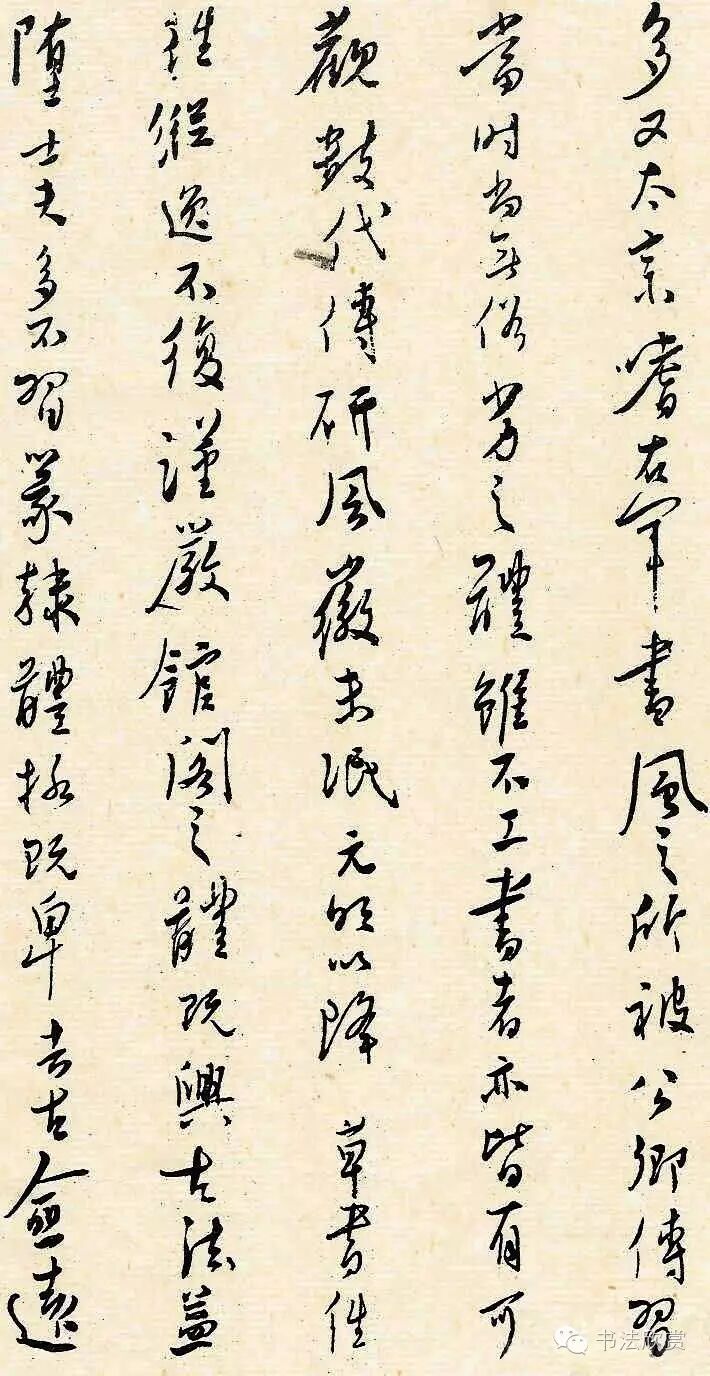 多又太宗嗜右軍書風之所被公卿傳習
當时尚无俗劣之體雖不工書者亦皆有可
觀數代傳研風徽未泯元明以降草書往
往縱逸不復謹嚴館閣之體既興古法益
墮士夫多不習篆隸體格既卑去古愈遠
书法欣赏